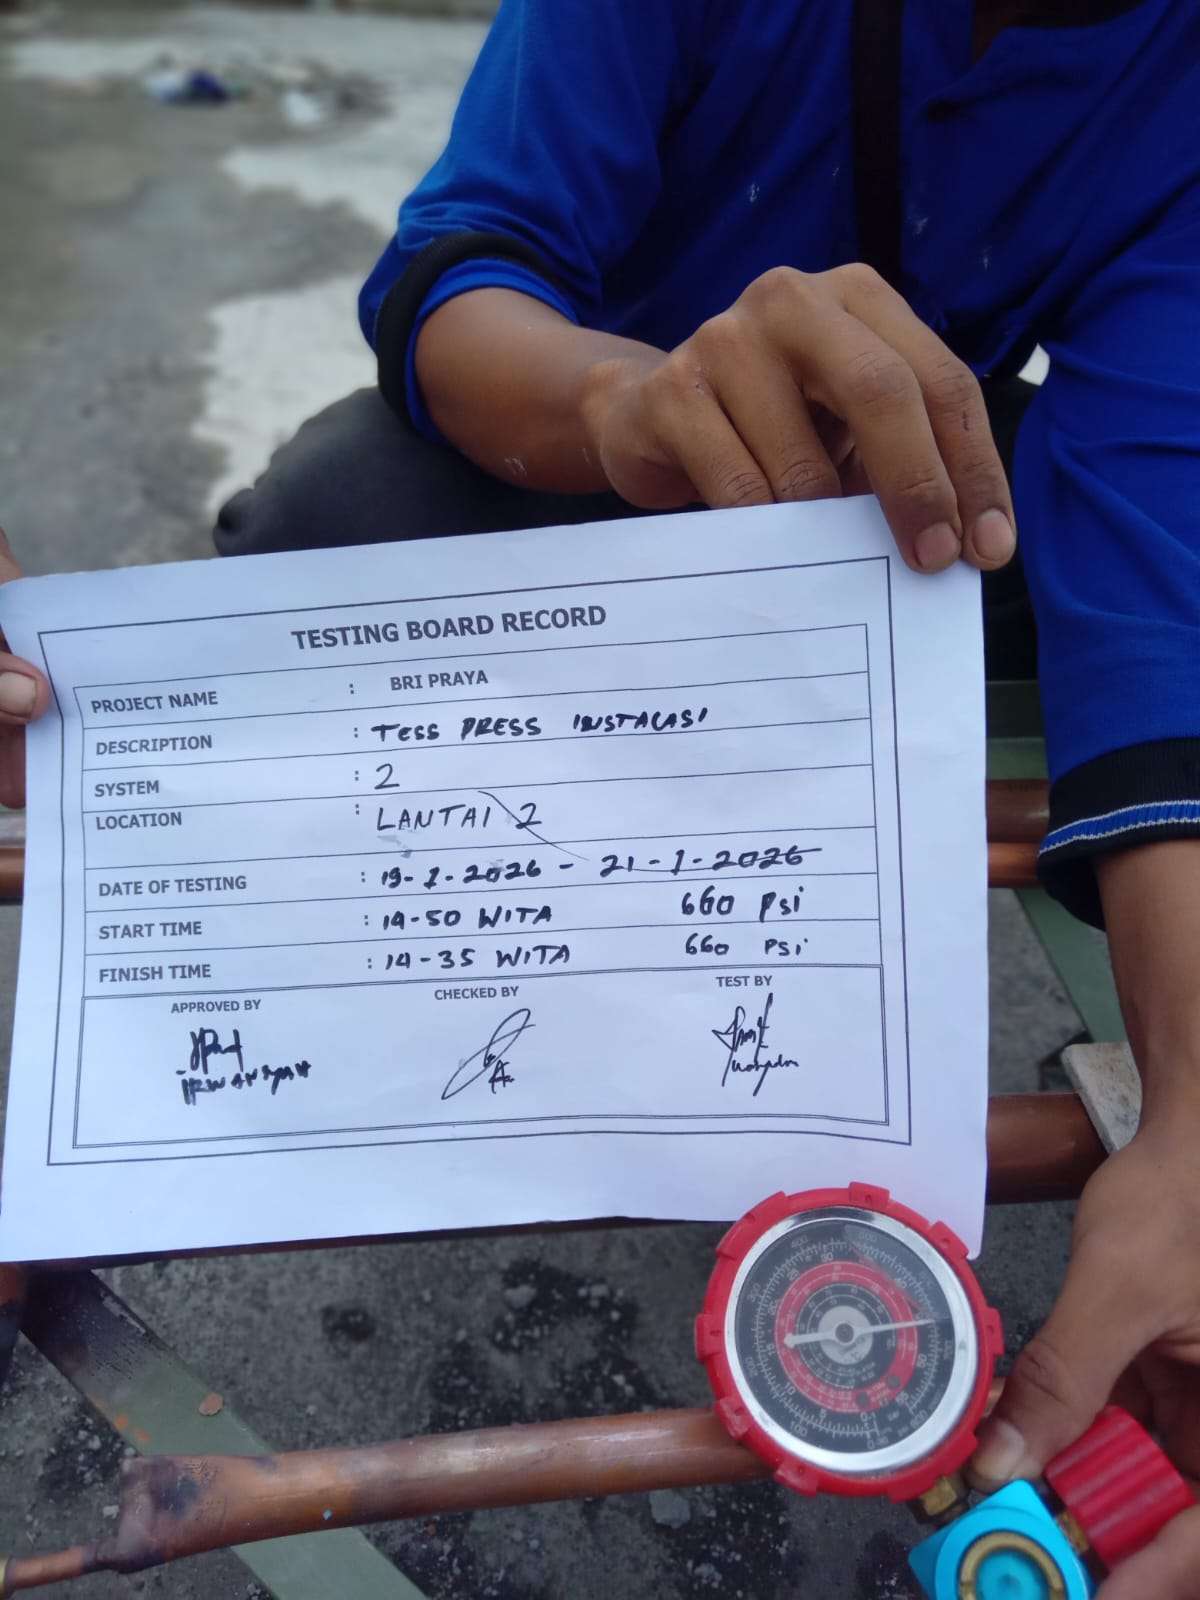 TESTING BOARD RECORD
PROJECT NAME : BRI PRAYA
DESCRIPTION : TESS PRESS INSTALASI
SYSTEM : 2
LOCATION : LANTAI 2
DATE OF TESTING : 19-1-2026 - 21-1-2026
START TIME : 14-50 WITA 660 PSi
FINISH TIME : 14-35 WITA 660 PSi
APPROVED BY CHECKED BY TEST BY
IRWANSYAH